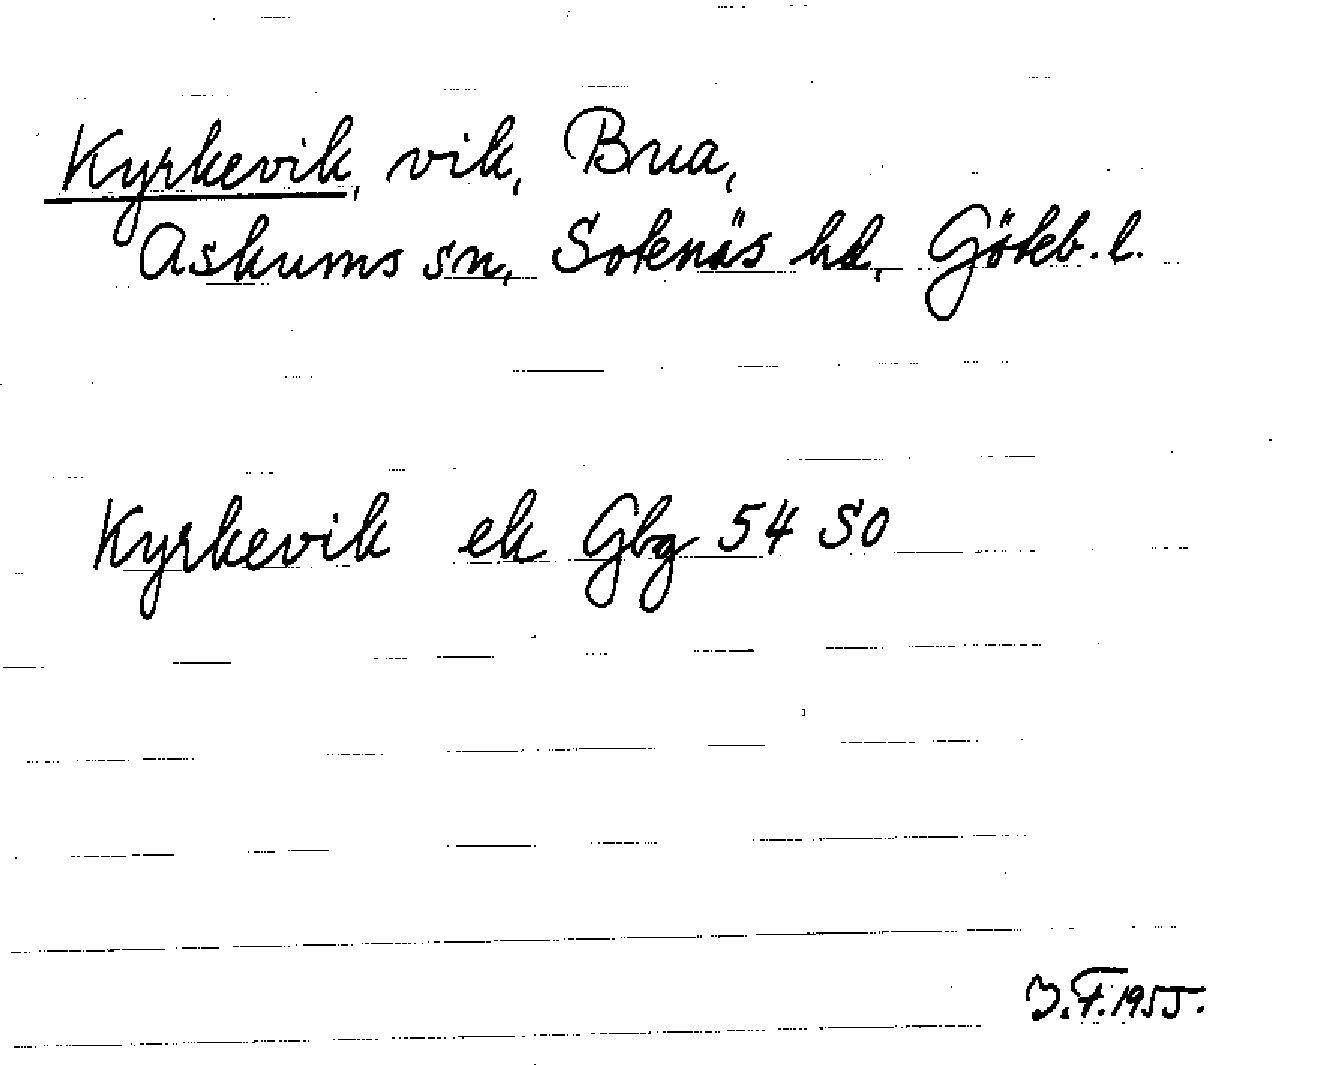 Kyrkevik, vik, Bua,
Askums sn, Sotenäs hd, Göteb. l.
Kyrkevik ek Gbg 54 SO
J.F. 1955.